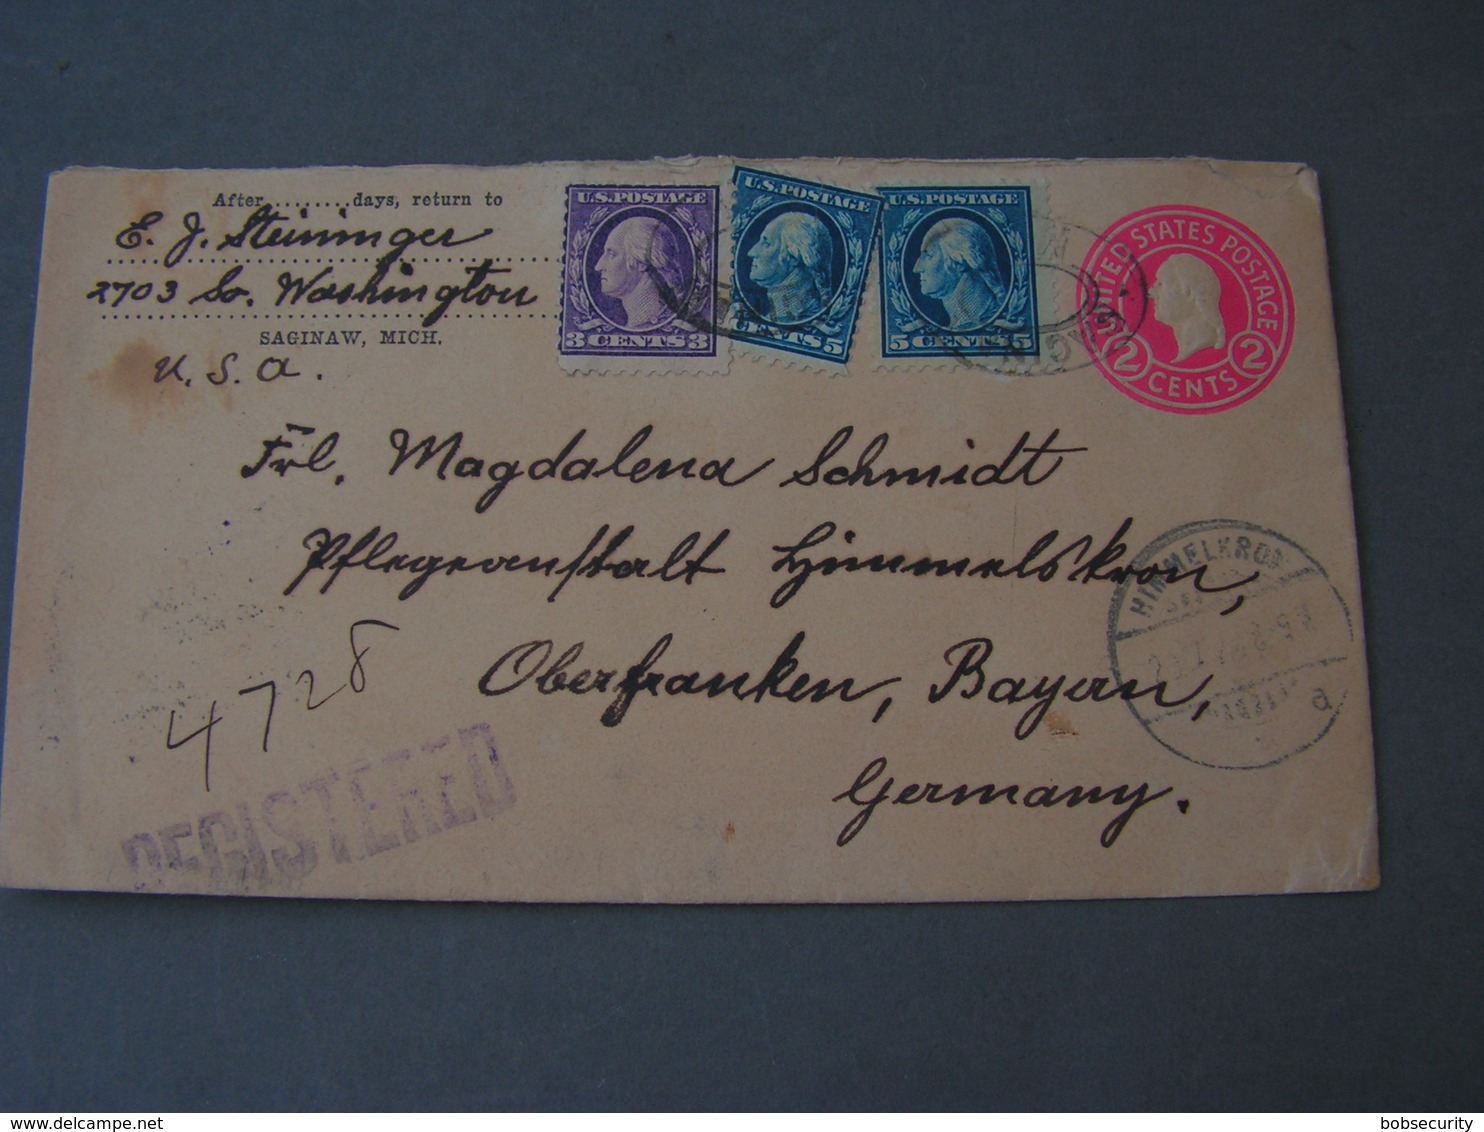 After.........days, return to
E. J. Steininger
2703 So. Washington
SAGINAW, MICH.
U. S. A.
U.S. POSTAGE
3 CENTS 3
U.S. POSTAGE
5 CENTS 5
U.S. POSTAGE
5 CENTS 5
UNITED STATES POSTAGE
2 CENTS 2
Frl. Magdalena Schmidt
Pflegeanstalt Himmelskron,
Oberfranken, Bayern,
Germany.
HIMMELKRON
a
4728
REGISTERED
delcampe.net
bobsecurity